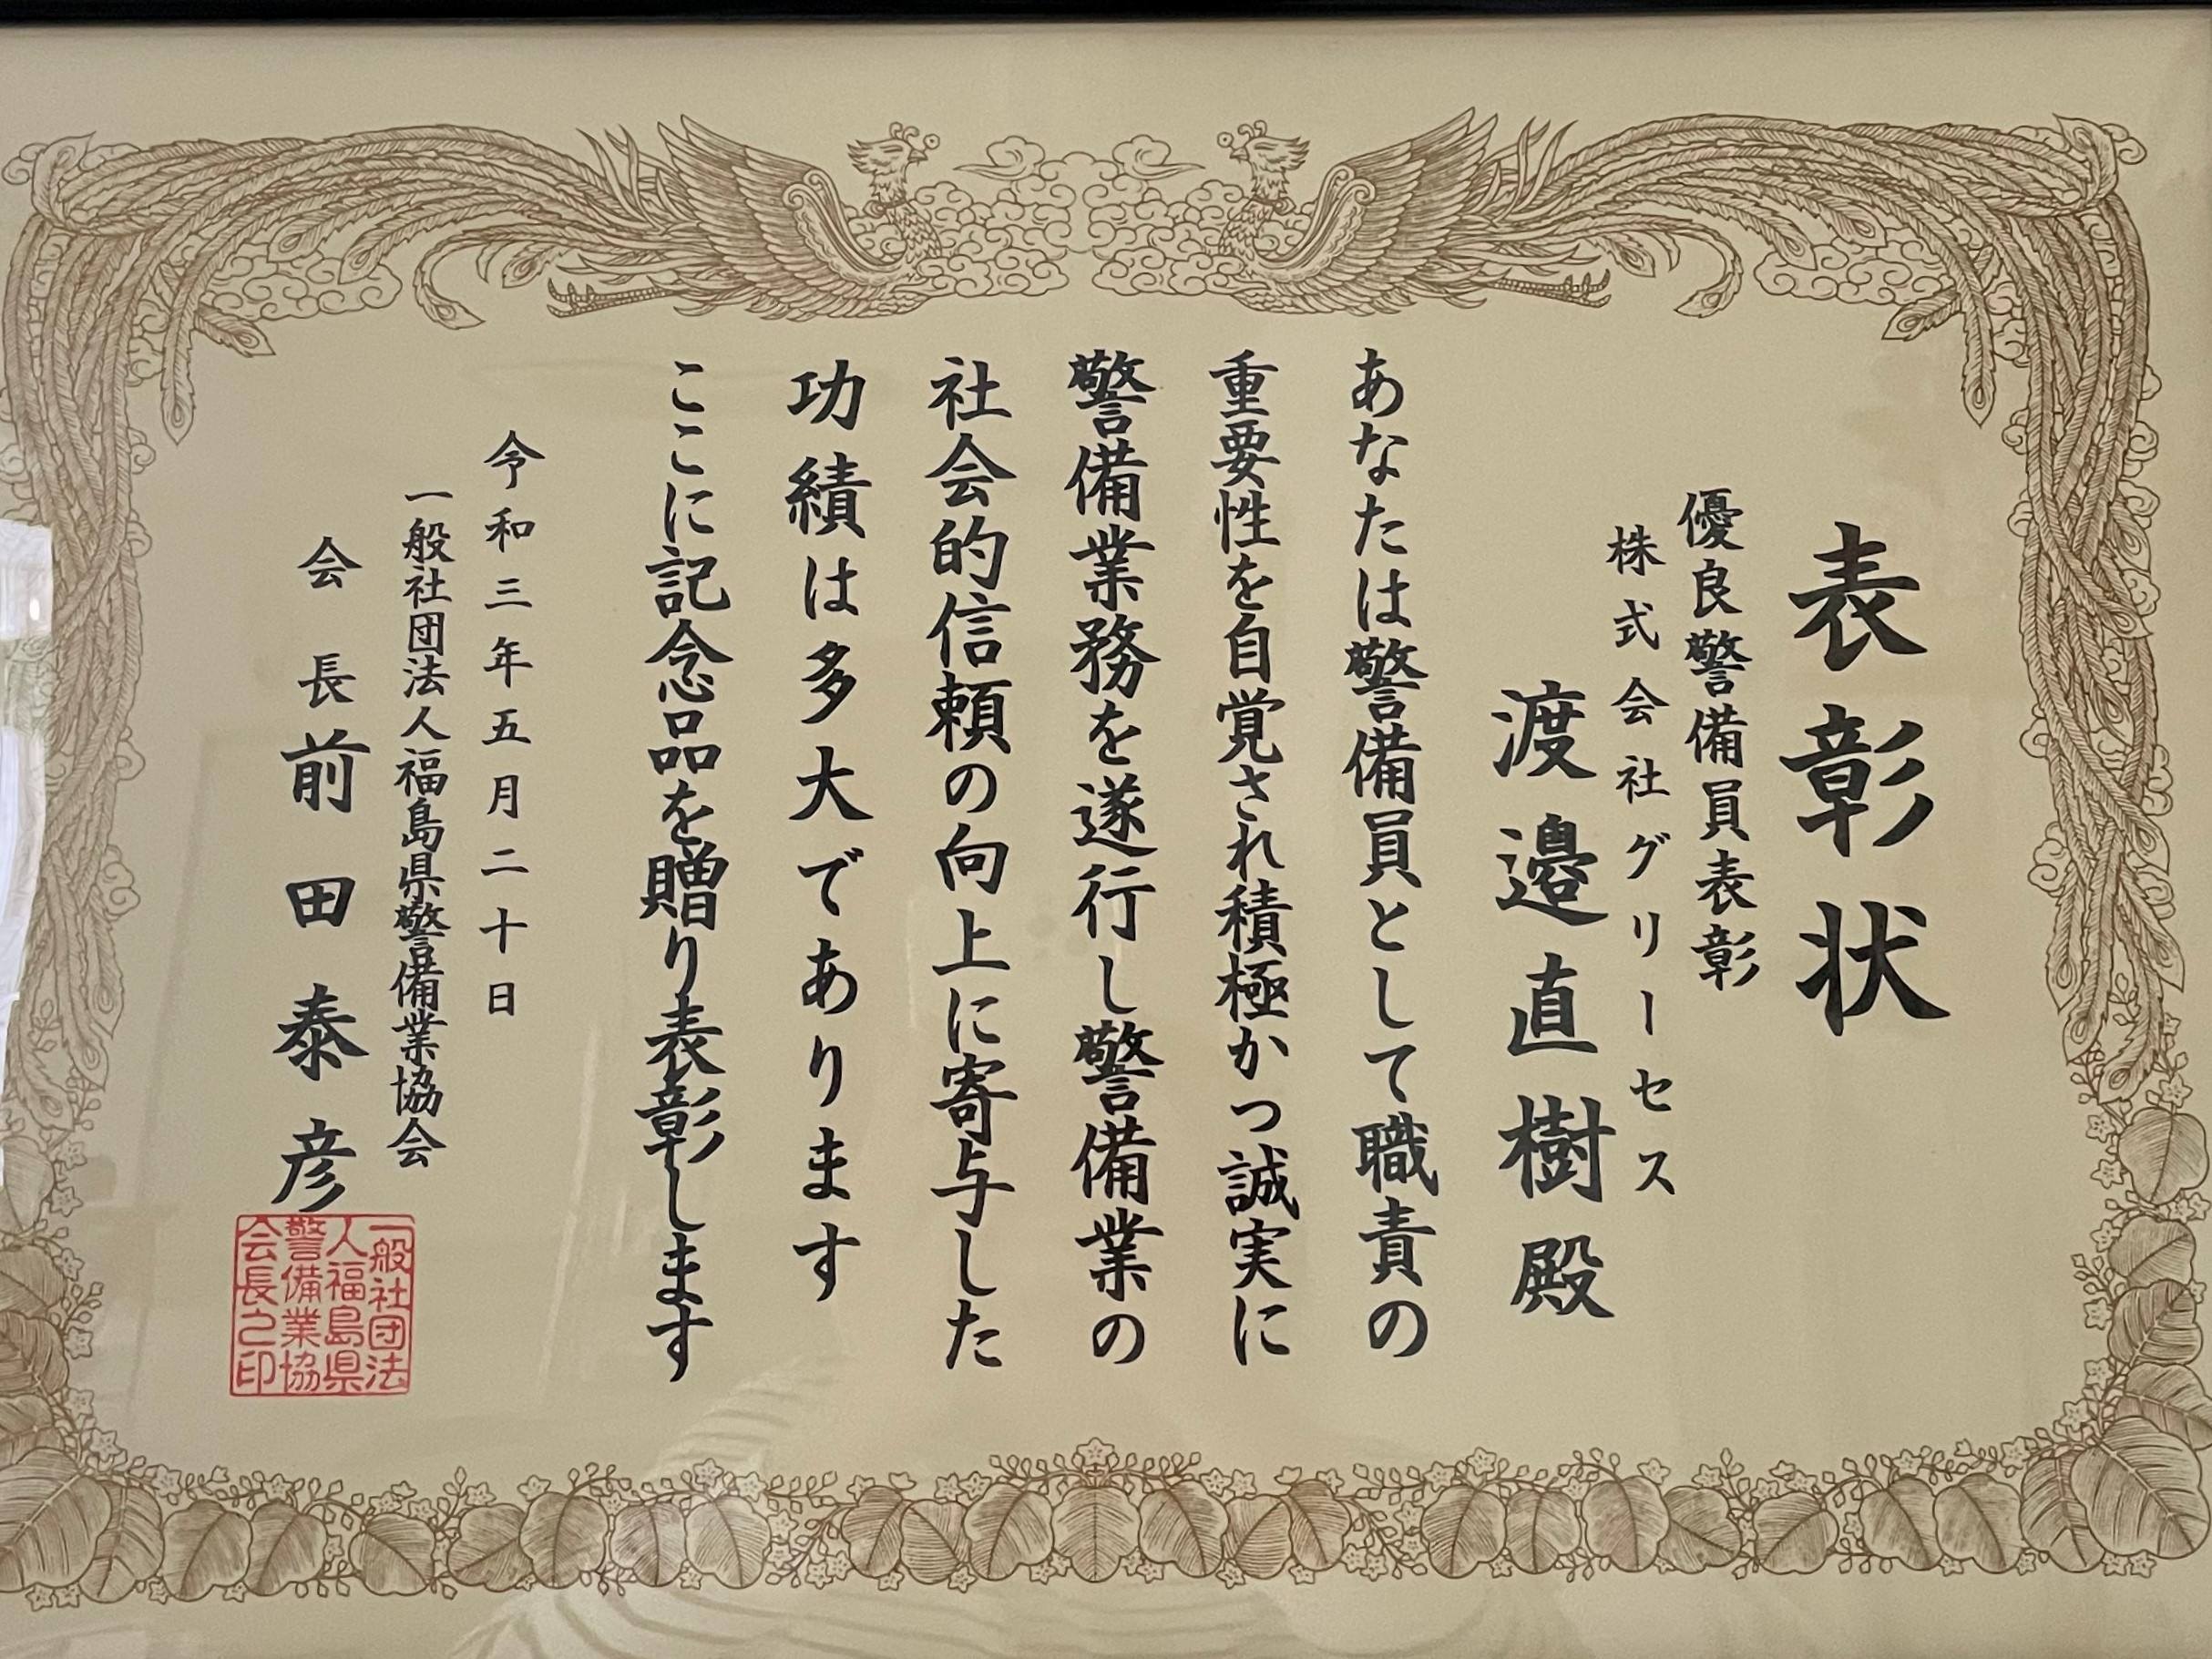 表彰状
優良警備員表彰
株式会社グリーセス
渡邉直樹殿
あなたは警備員として職責の
重要性を自覚され積極かつ誠実に
警備業務を遂行し警備業の
社会的信頼の向上に寄与した
功績は多大であります
ここに記念品を贈り表彰します
令和三年五月二十日
一般社団法人福島県警備業協会
会長前田泰彦
一般社団法
人福島県
警備業協
会長之印